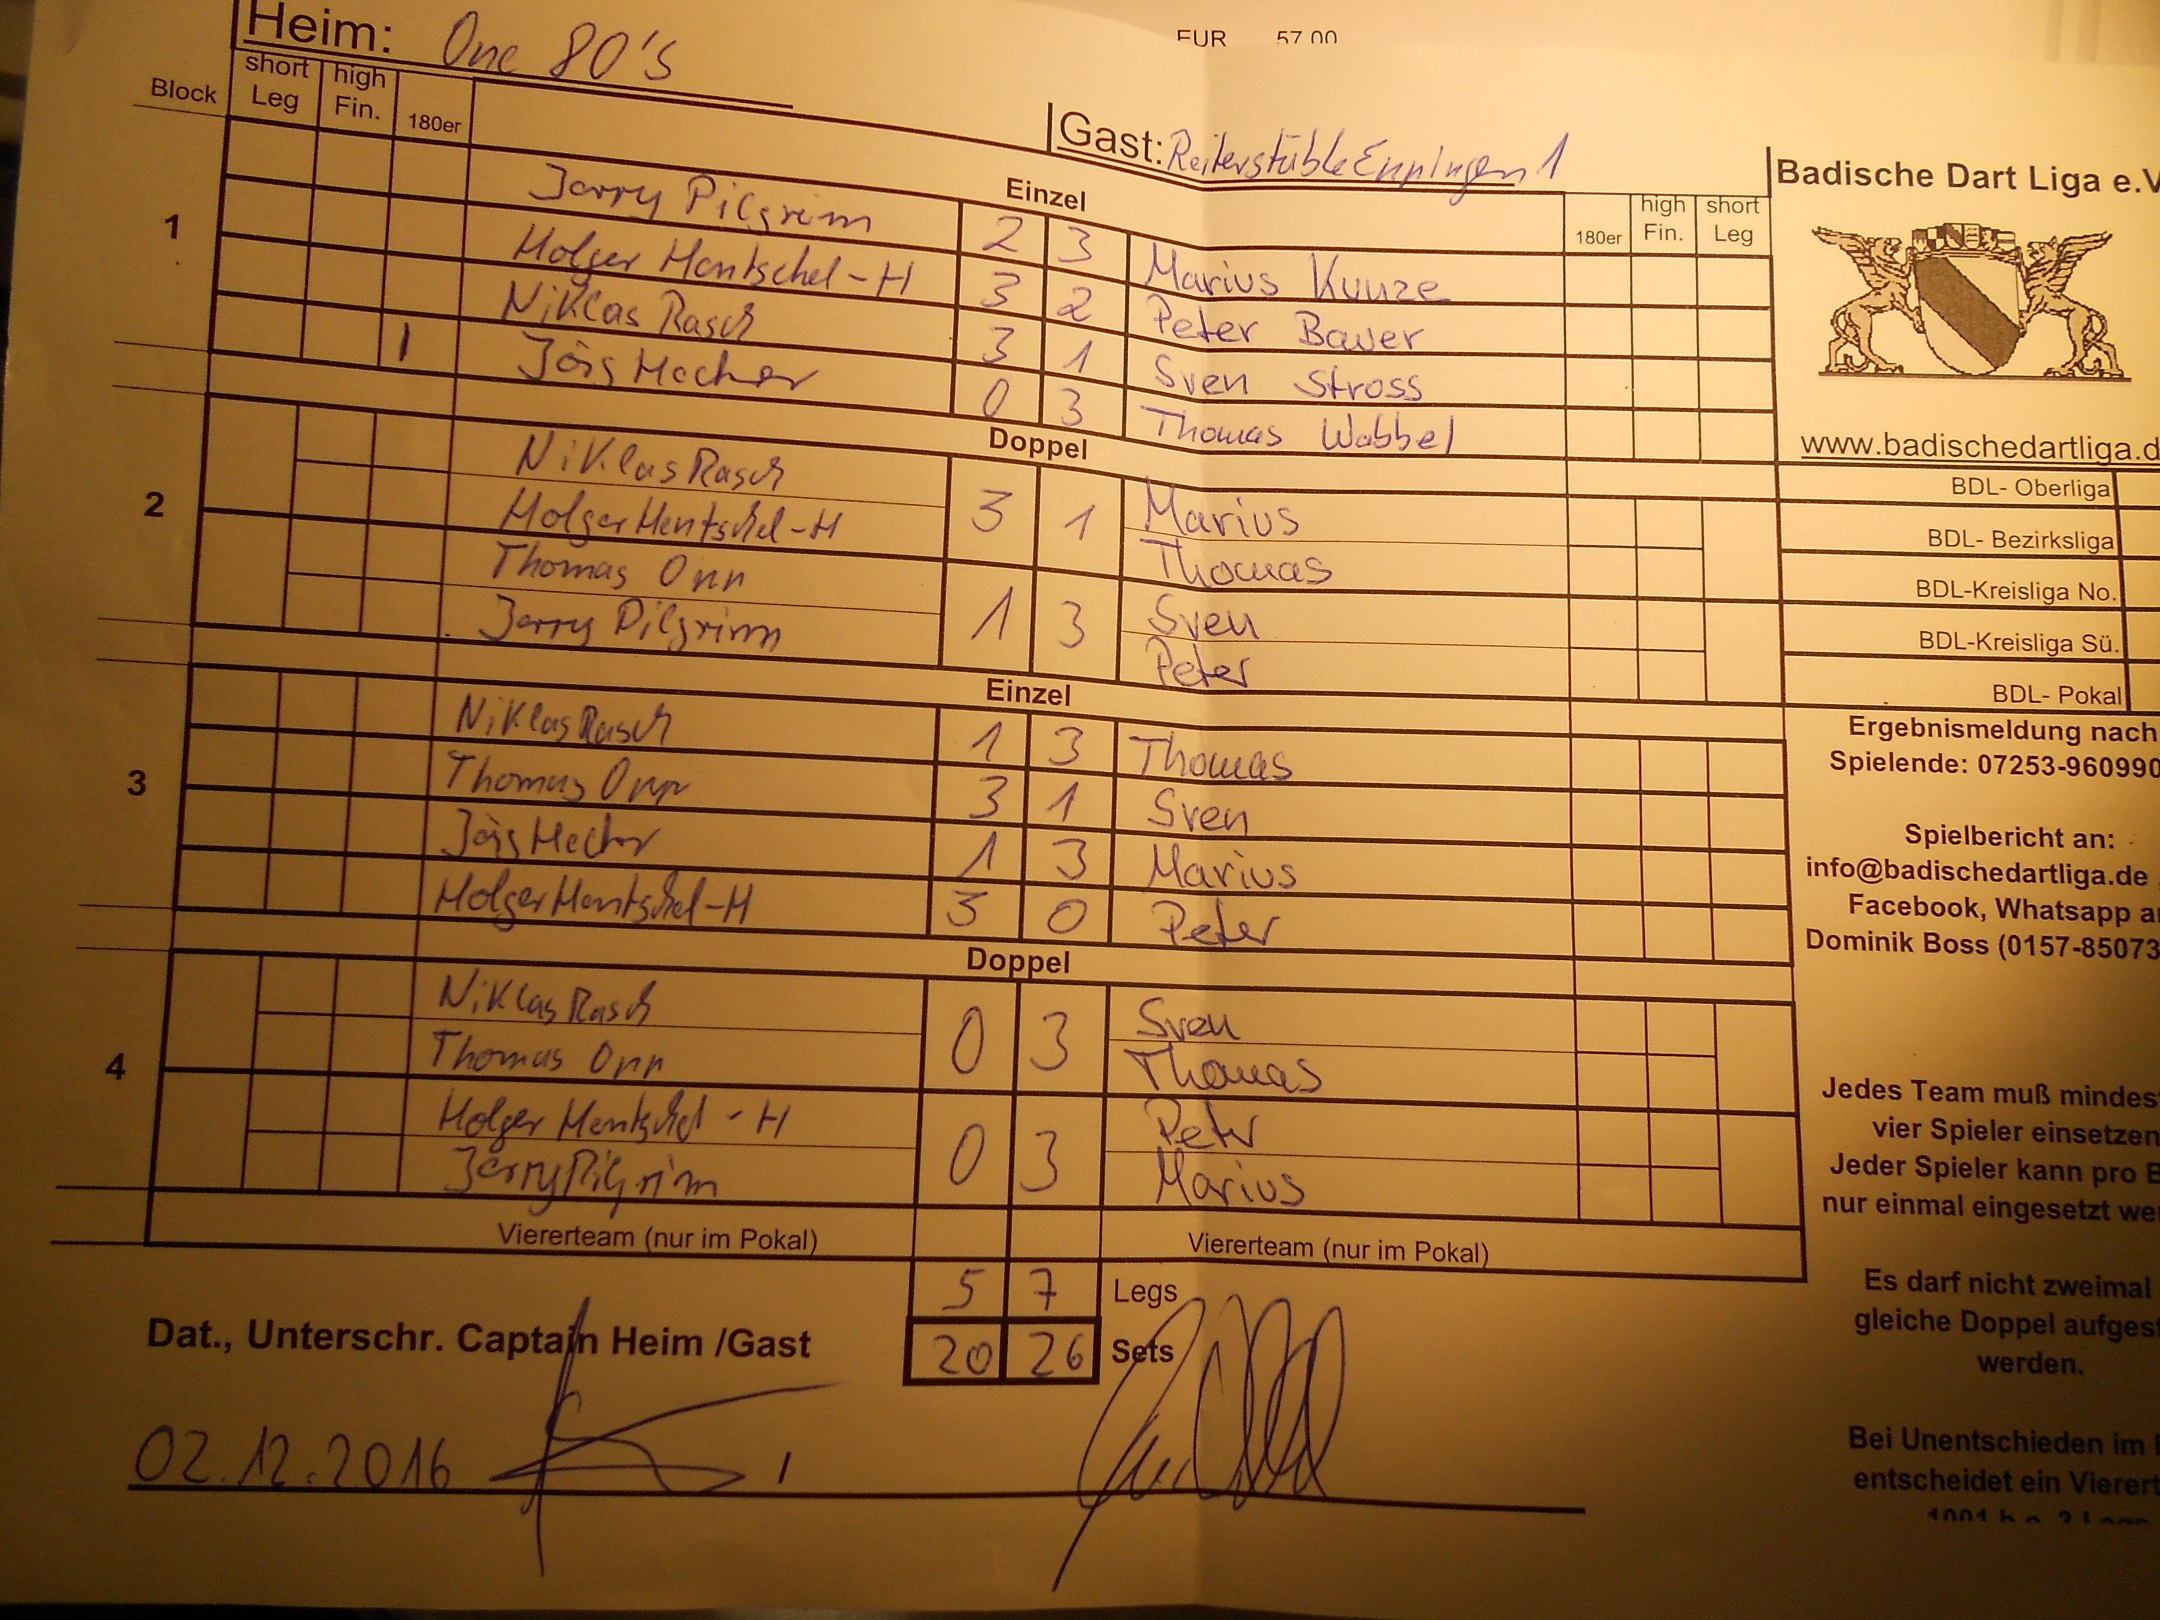 Heim: One 80's
EUR 57,00
Block short Leg high Fin. 180er
Gast: Reiterstüble Eppingen 1
180er high Fin. short Leg
Badische Dart Liga e.V
Einzel
1
Jerry Pilgrim 2 3 Marius Kunze
Holger Hentschel-H 3 2 Peter Bauer
Niklas Rasch 3 1 Sven Stross
1 Jörg Hecher 0 3 Thomas Wabbel
www.badischedartliga.d
Doppel
2
Niklas Rasch 3 1 Marius
Holger Hentschel-H Thomas
Thomas Opp 1 3 Sven
Jerry Pilgrim Peter
BDL- Oberliga
BDL- Bezirksliga
BDL-Kreisliga No.
BDL-Kreisliga Sü.
BDL- Pokal
Einzel
3
Niklas Rasch 1 3 Thomas
Thomas Opp 3 1 Sven
Jörg Hecher 1 3 Marius
Holger Hentschel-H 3 0 Peter
Ergebnismeldung nach
Spielende: 07253-960990
Spielbericht an:
info@badischedartliga.de
Facebook, Whatsapp a
Dominik Boss (0157-85073
Doppel
4
Niklas Rasch 0 3 Sven
Thomas Opp Thomas
Holger Hentschel - H 0 3 Peter
Jerry Pilgrim Marius
Viererteam (nur im Pokal) Viererteam (nur im Pokal)
Jedes Team muß mindes
vier Spieler einsetzen
Jeder Spieler kann pro B
nur einmal eingesetzt we
5 7 Legs
20 26 Sets
Es darf nicht zweimal
gleiche Doppel aufgest
werden.
Dat., Unterschr. Captain Heim /Gast
02.12.2016 /
Bei Unentschieden im
entscheidet ein Vierert